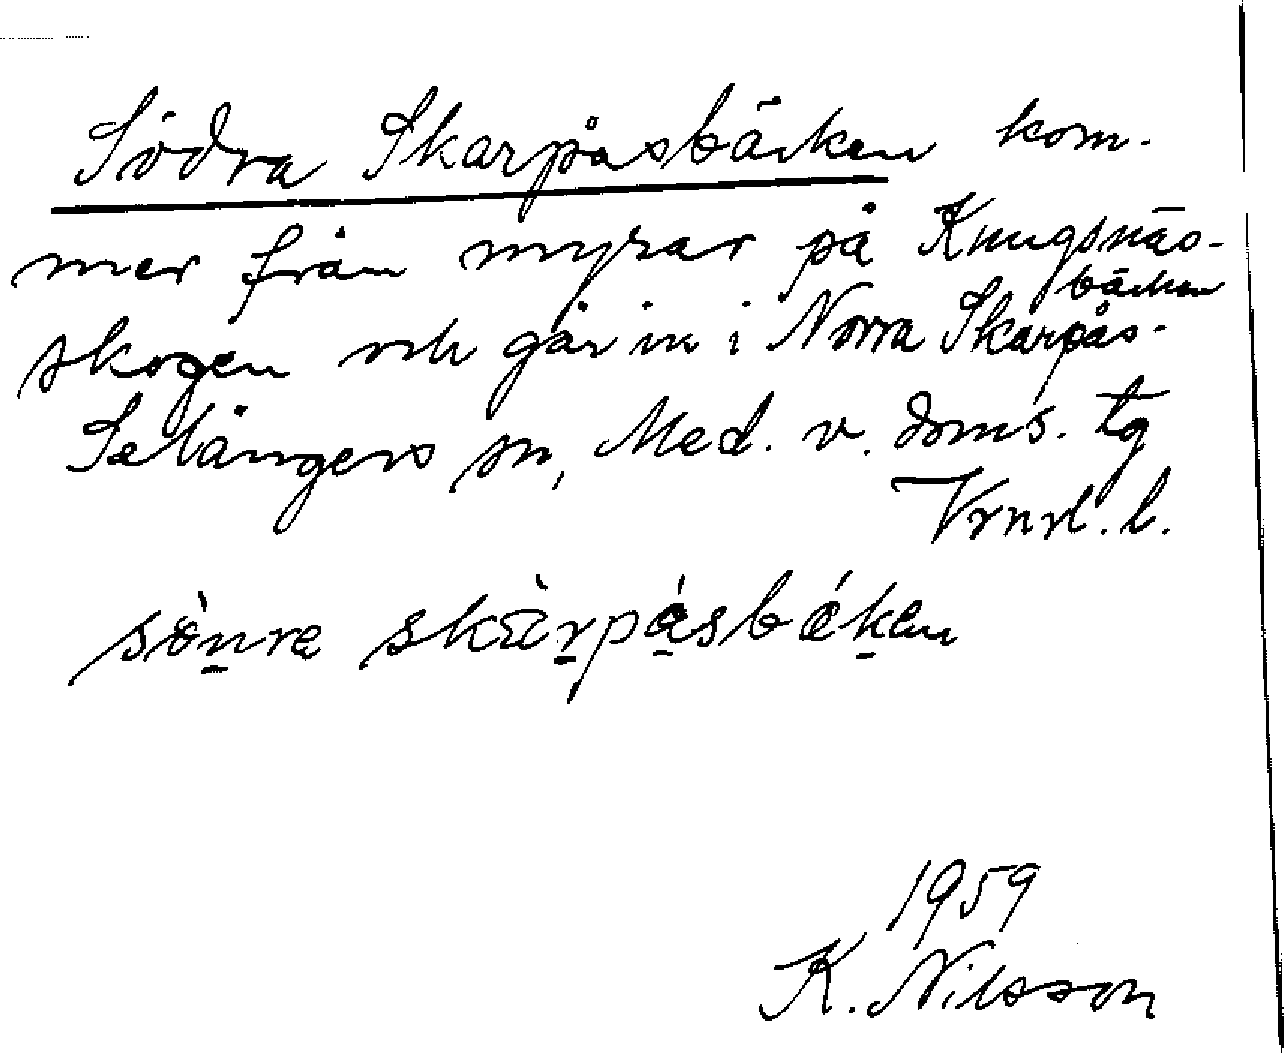 Södra Skarpåsbäcken kom-
mer från myrar på Kungsnäs-
skogen och går in i Norra Skarpås-
bäcken
Selångers sn, Med. v. doms. tg
Vrnrl. l.
sònre skàrpásbáken
1959
K. Nilsson